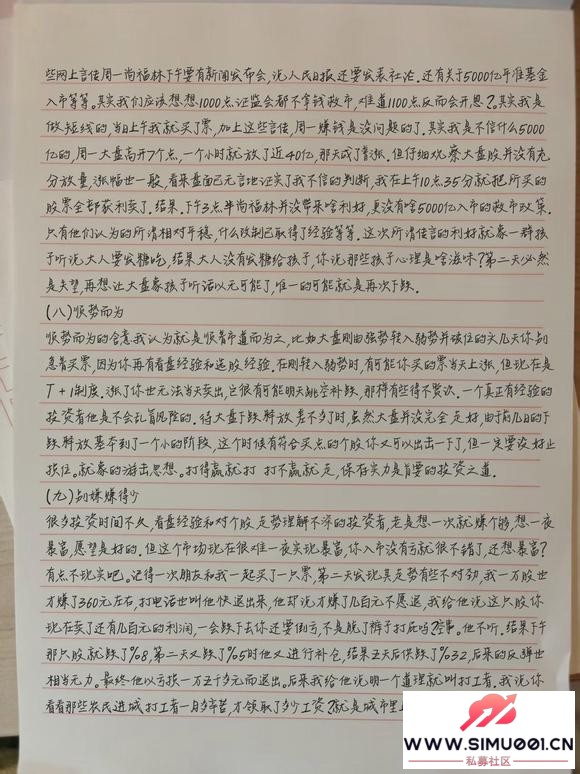 些网上言传周一尚福林下午要有新闻发布会,说人民日报还要发表社论.还有关于5000亿平准基金
入市等等。其实我们应该想想1000点证监会都不拿钱救市,难道1100点反而会开恩?。其实我是
做短线的,当日上午我就买了票,加上这些言传,周一赚钱是没问题的了.其实我是不信什么5000
亿的,周一大盘高开7个点,一个小时就放了近40亿,那天成了普涨.但仔细观察大盘股并没有充
分放量,涨幅也一般,看来盘面已无言地证实了我不信的判断,我在上午10点35分就把所买的
股票全部获利卖了.结果.下午3点半尚福林并没带来啥利好,更没有啥5000亿入市的救市政策.
只有他们认为的所谓相对平稳,什么改制已取得了经验等等.这次所谓传言的利好就象一群孩
子听说大人要发糖吃,结果大人没有发糖给孩子,你说那些孩子心理是啥滋味?第二天必然
是失望,再想让大盘象孩子听话以无可能了,唯一的可能就是再次下跌.
(八)顺势而为
顺势而为的含意我认为就是顺着市道而为之,比如大盘刚由强势转入弱势并破位的头几天你别
急着买票,因为你再有看盘经验和选股经验.在刚转入弱势时,有可能你买的票当天上涨,但现在是
T+1制度.涨了你也无法当天卖出,它很有可能明天跳空补跌,那样有些得不赏次.一个真正有经验的
投资者他是不会乱冒风险的.待大盘下跌释放差不多了时,虽然大盘并没完全走好,由于前几日的下
跌释放基本到了一个小的阶段,这个时候有符合买点的个股你又可以出击一下了,但一定要设好止
损位。就象的游击思想。打得赢就打 打不赢就走,保存实力是首要的投资之道.
(九)别嫌赚得少
很多投资时间不久,看盘经验和对个股走势理解不深的投资者,老是想一次就赚个够,想一夜
暴富,愿望是好的.但这个市场现在很难一夜实现暴富,你入市没有亏就很不错了,还想暴富?
有点不现实吧。记得一次朋友和我一起买了一只票,第二天发现其走势有些不对劲,我一万股也
才赚了360元左右,打电话也叫他快退出来,他却说才赚了几百元不愿退,我给他说这只股你
现在卖了还有几百元的利润,一会跌下去你还要倒亏,不是脱了裤子打屁吗?空事。他不听.结果下午
那只股就跌了%8,第二天又跌了%5时他又进行补仓,结果五天后供跌了%32,后来的反弹也
相当无力。最终他以亏损一万五千多元而退出。后来我给他说明一个道理就叫打工者.我说你
看看那些农民进城打工者一月多辛苦,才领取了多少工资?就是城市里
WWW.SIMU001.CN
私募社区